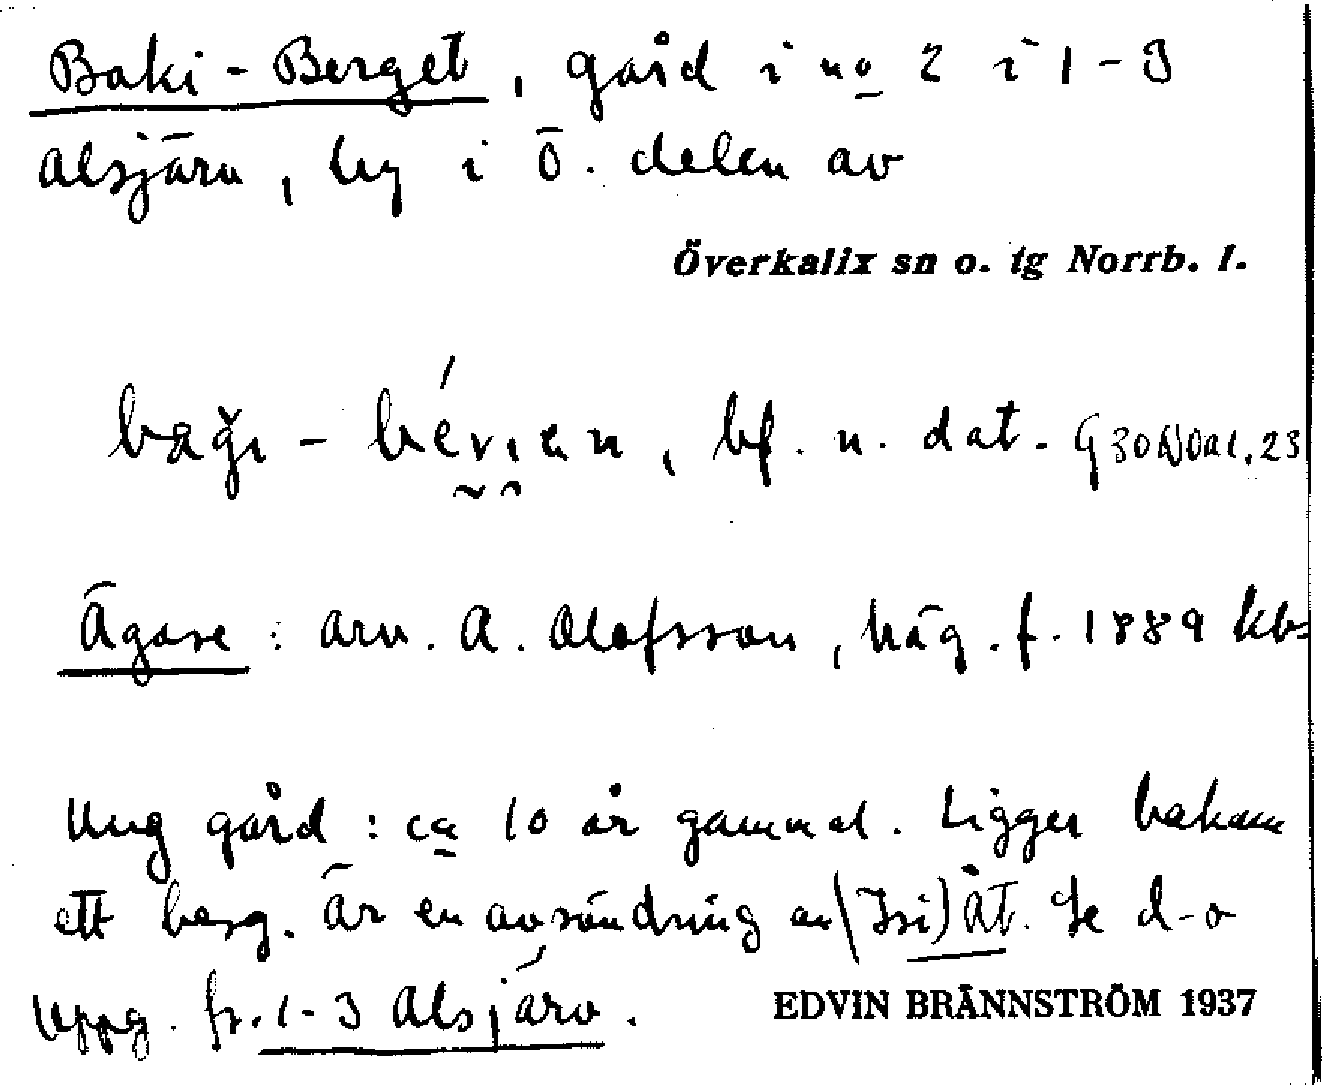 Baki-Berget, gård i no 2 i 1-3
Alsjärv, by i Ö. delen av
Överkalix sn o. tg Norrb. l.
bf. n. dat.
Ägare: arv. A. Olofsson, häg. f. 1889
Ung gård: ca 10 år gammal. Ligger bakom
ett berg. Är en avsöndring av (Isi) åt. Se d-o
Uppg. fr. 1-3 Alsjärv.
EDVIN BRÄNNSTRÖM 1937